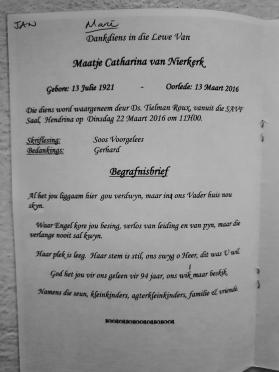 JAN Mari
Dankdiens in die Lewe Van
Maatje Catharina van Nierkerk
Gebore: 13 Julie 1921 - Oorlede: 13 Maart 2016
Die diens word waargeneem deur Ds. Tielman Roux, vanuit die SAVF
Saal, Hendrina op Dinsdag 22 Maart 2016 om 11H00.
Skriflesing: Soos Voorgelees
Bedankings: Gerhard
Begrafnisbrief
Al het jou liggaam hier gou verdwyn, maar in ons Vader huis nou
skyn.
Waar Engel kore jou besing, verlos van leiding en van pyn, maar die
verlange nooit sal kwyn.
Haar plek is leeg. Haar stem is stil, ons swyg o Heer, dit was U wil.
God het jou vir ons geleen vir 94 jaar, ons wik maar beskik.
Namens die seun, kleinkinders, agterkleinkinders, familie & vriende.